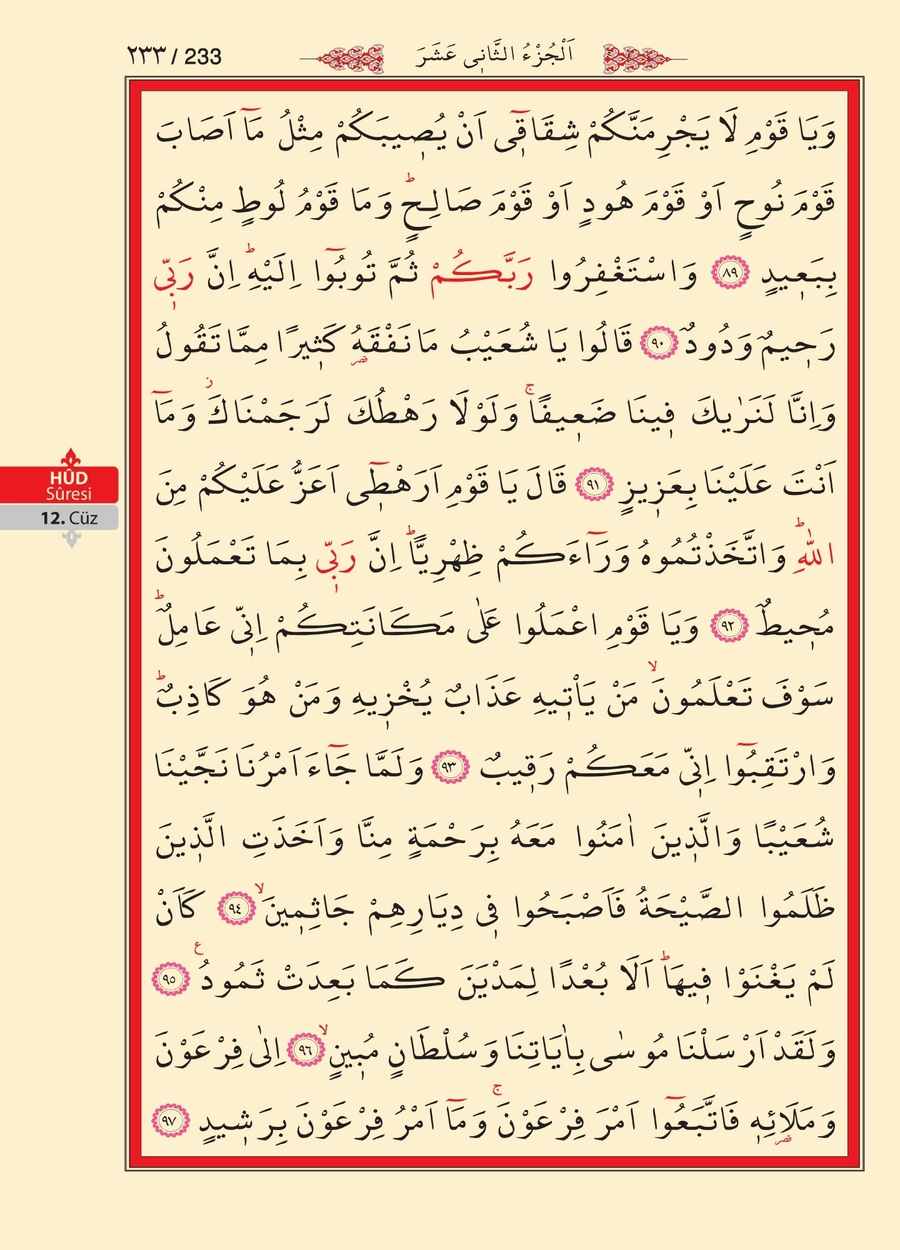 ٢٣٣ / 233
اَلْجُزْءُ الثَّانٖى عَشَرَ
وَيَا قَوْمِ لَا يَجْرِمَنَّكُمْ شِقَاقٖٓى اَنْ يُصٖيبَكُمْ مِثْلُ مَٓا اَصَابَ
قَوْمَ نُوحٍ اَوْ قَوْمَ هُودٍ اَوْ قَوْمَ صَالِحٍؕ وَمَا قَوْمُ لُوطٍ مِنْكُمْ
بِبَعٖيدٍ ﴿٨٩﴾ وَاسْتَغْفِرُوا رَبَّكُمْ ثُمَّ تُوبُٓوا اِلَيْهِؕ اِنَّ رَبّٖى
رَحٖيمٌ وَدُودٌ ﴿٩٠﴾ قَالُوا يَا شُعَيْبُ مَا نَفْقَهُ كَثٖيرًا مِمَّا تَقُولُ
وَاِنَّا لَنَرٰيكَ فٖينَا ضَعٖيفًاۚ وَلَوْلَا رَهْطُكَ لَرَجَمْنَاكَؗ وَمَٓا
اَنْتَ عَلَيْنَا بِعَزٖيزٍ ﴿٩١﴾ قَالَ يَا قَوْمِ اَرَهْطٖٓى اَعَزُّ عَلَيْكُمْ مِنَ
اللّٰهِؕ وَاتَّخَذْتُمُوهُ وَرَٓاءَكُمْ ظِهْرِيًّاؕ اِنَّ رَبّٖى بِمَا تَعْمَلُونَ
مُحٖيطٌ ﴿٩٢﴾ وَيَا قَوْمِ اعْمَلُوا عَلٰى مَكَانَتِكُمْ اِنّٖى عَامِلٌؕ
سَوْفَ تَعْلَمُونَۙ مَنْ يَاْتٖيهِ عَذَابٌ يُخْزٖيهِ وَمَنْ هُوَ كَاذِبٌؕ
وَارْتَقِبُٓوا اِنّٖى مَعَكُمْ رَقٖيبٌ ﴿٩٣﴾ وَلَمَّا جَٓاءَ اَمْرُنَا نَجَّيْنَا
شُعَيْبًا وَالَّذٖينَ اٰمَنُوا مَعَهُ بِرَحْمَةٍ مِنَّا وَاَخَذَتِ الَّذٖينَ
ظَلَمُوا الصَّيْحَةُ فَاَصْبَحُوا فٖى دِيَارِهِمْ جَاثِمٖينَۙ ﴿٩٤﴾ كَاَنْ
لَمْ يَغْنَوْا فٖيهَاؕ اَلَا بُعْدًا لِمَدْيَنَ كَمَا بَعِدَتْ ثَمُودُ ع ﴿٩٥﴾
وَلَقَدْ اَرْسَلْنَا مُوسٰى بِاٰيَاتِنَا وَسُلْطَانٍ مُبٖينٍۙ ﴿٩٦﴾ اِلٰى فِرْعَوْنَ
وَمَلَائِهٖ فَاتَّبَعُٓوا اَمْرَ فِرْعَوْنَۚ وَمَٓا اَمْرُ فِرْعَوْنَ بِرَشٖيدٍ ﴿٩٧﴾
HÛD
Sûresi
12. Cüz